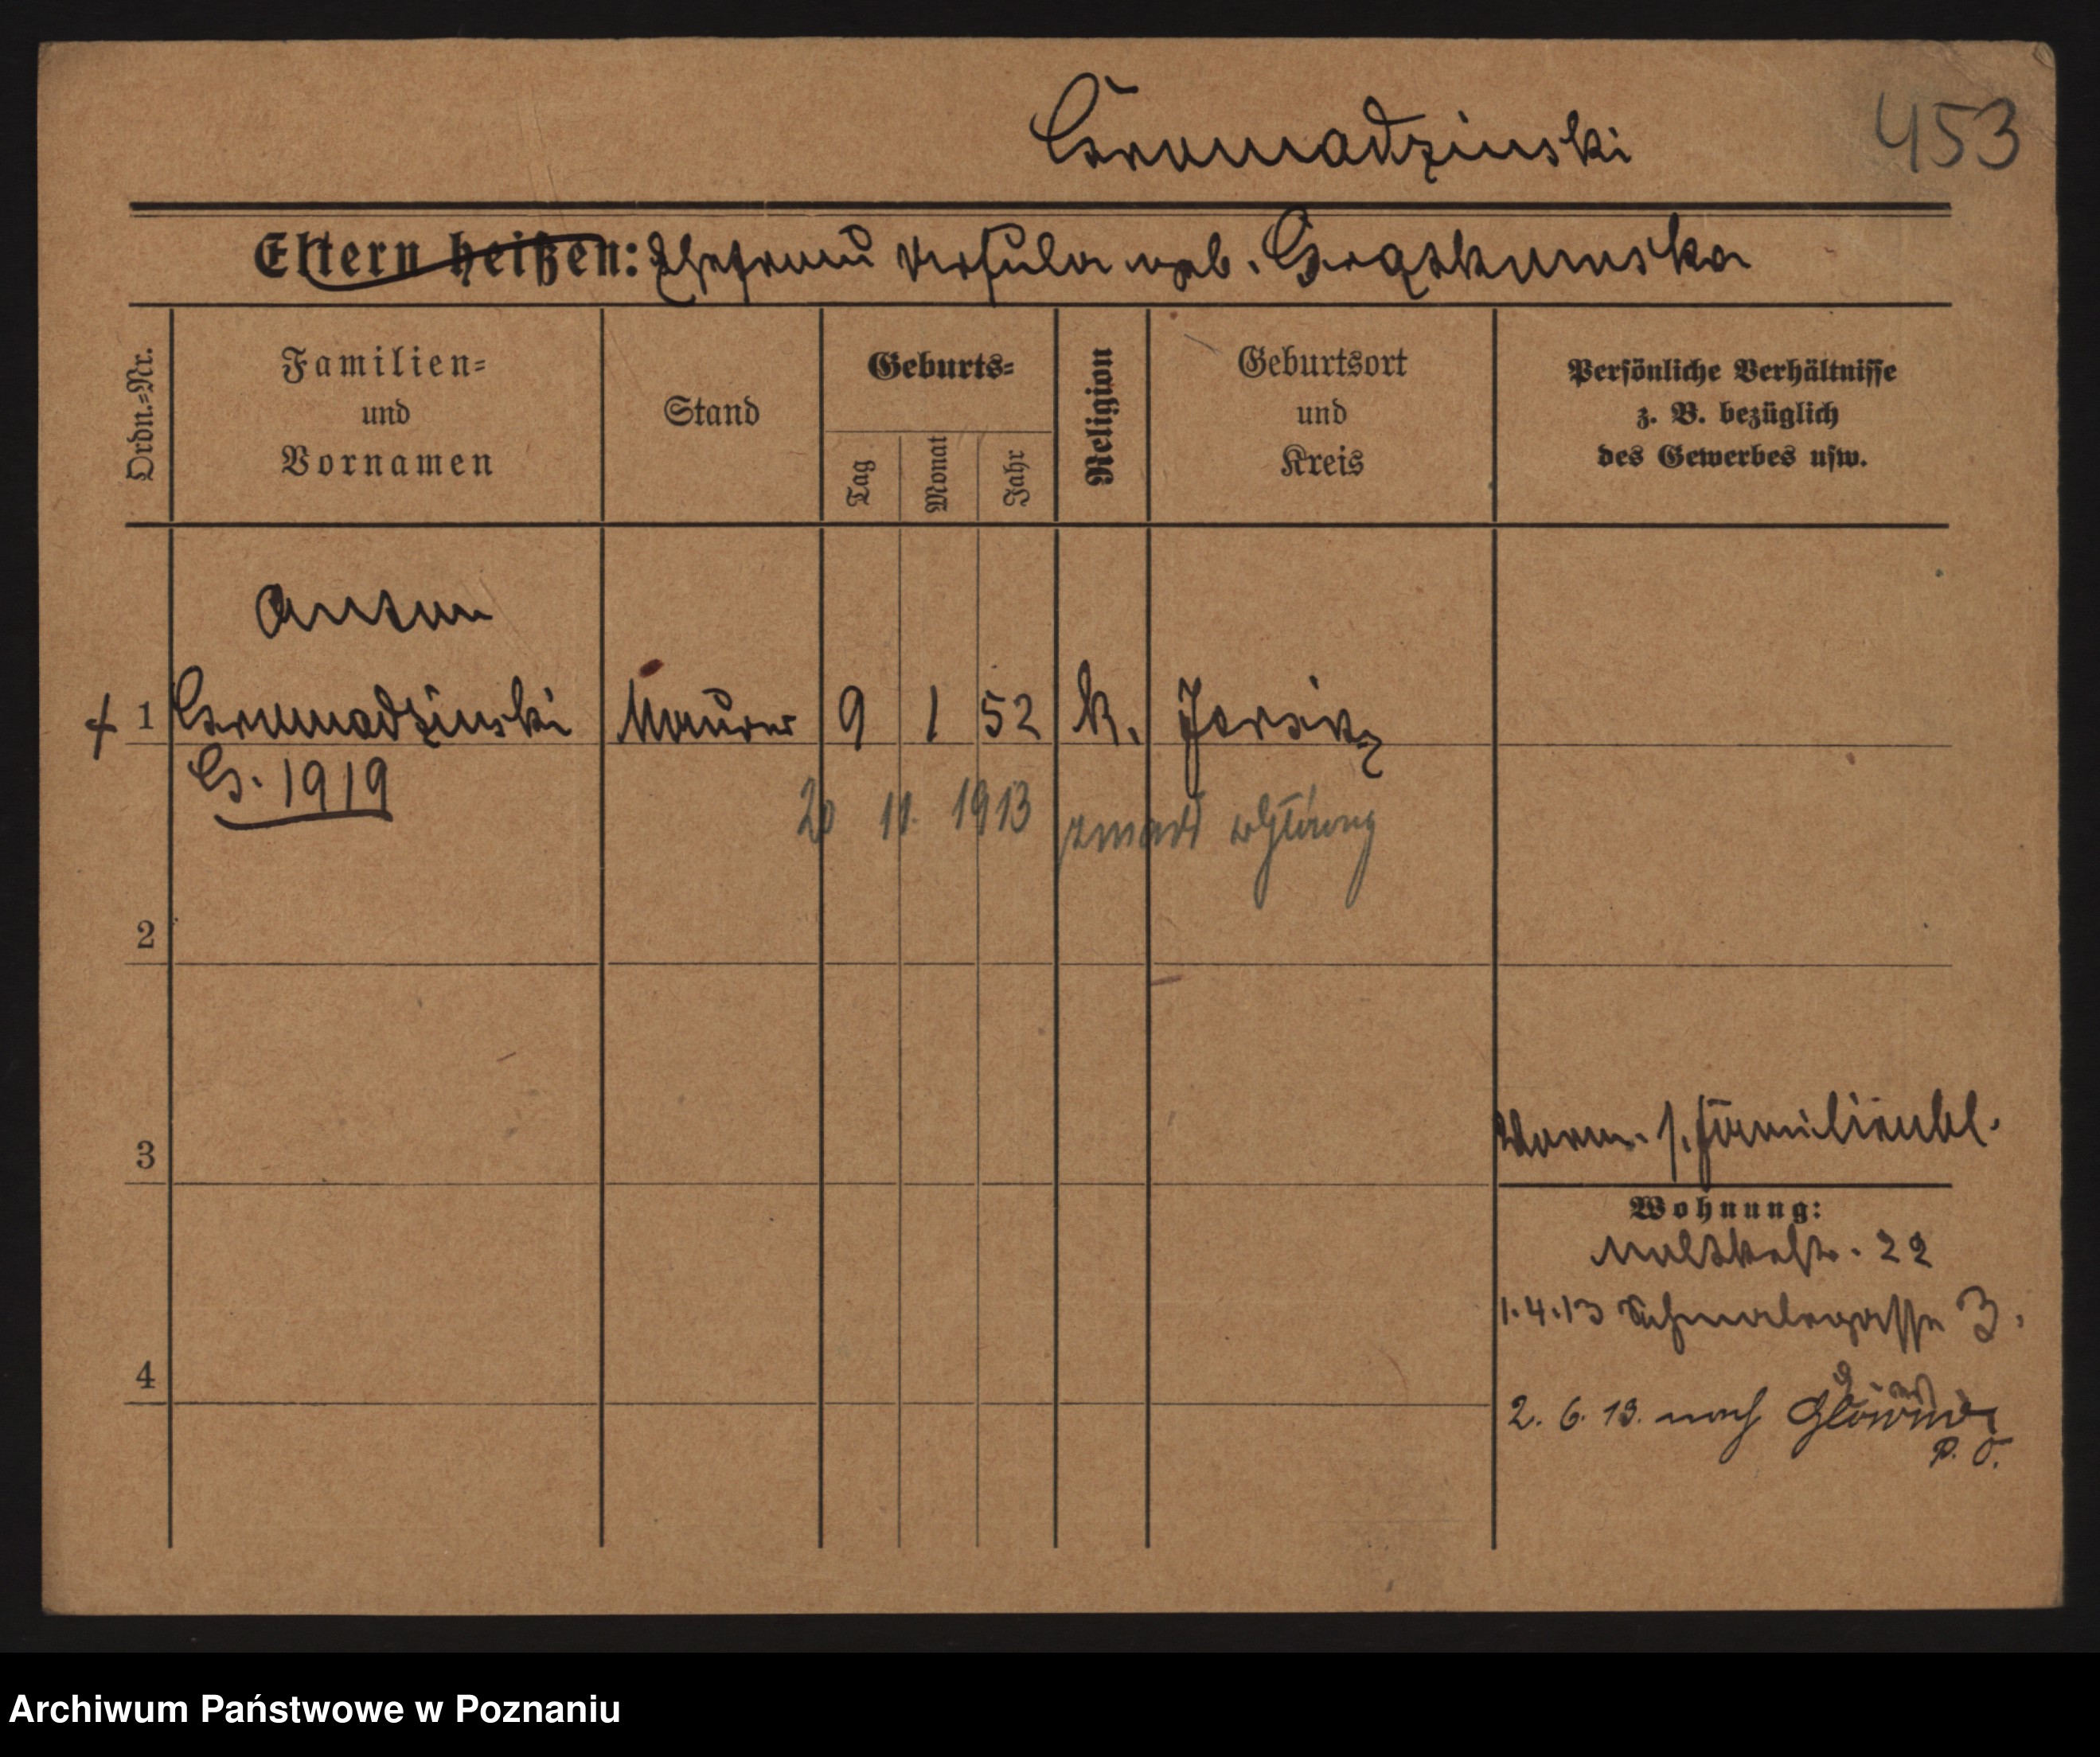 Gromadzinski
453
Eltern heißen: Ehefrau Ursula geb. Grąszkunska
Ordn.-Nr.
Familien-
und
Vornamen
Stand
Geburts-
Tag
Monat
Jahr
Religion
Geburtsort
und
Kreis
Persönliche Verhältnisse
z. B. bezüglich
des Gewerbes usw.
Anton
1 Gromadzinski Maurer 9 1 52 K. Jersitz
G. 1919
20 11. 1913 zmarł w Główny
2
3
Vorm. s. Familienbl.
Wohnung:
Moltkestr. 22
1.4.13 Schmalegasse 3.
4
2. 6. 13. nach
P. O.
Archiwum Państwowe w Poznaniu